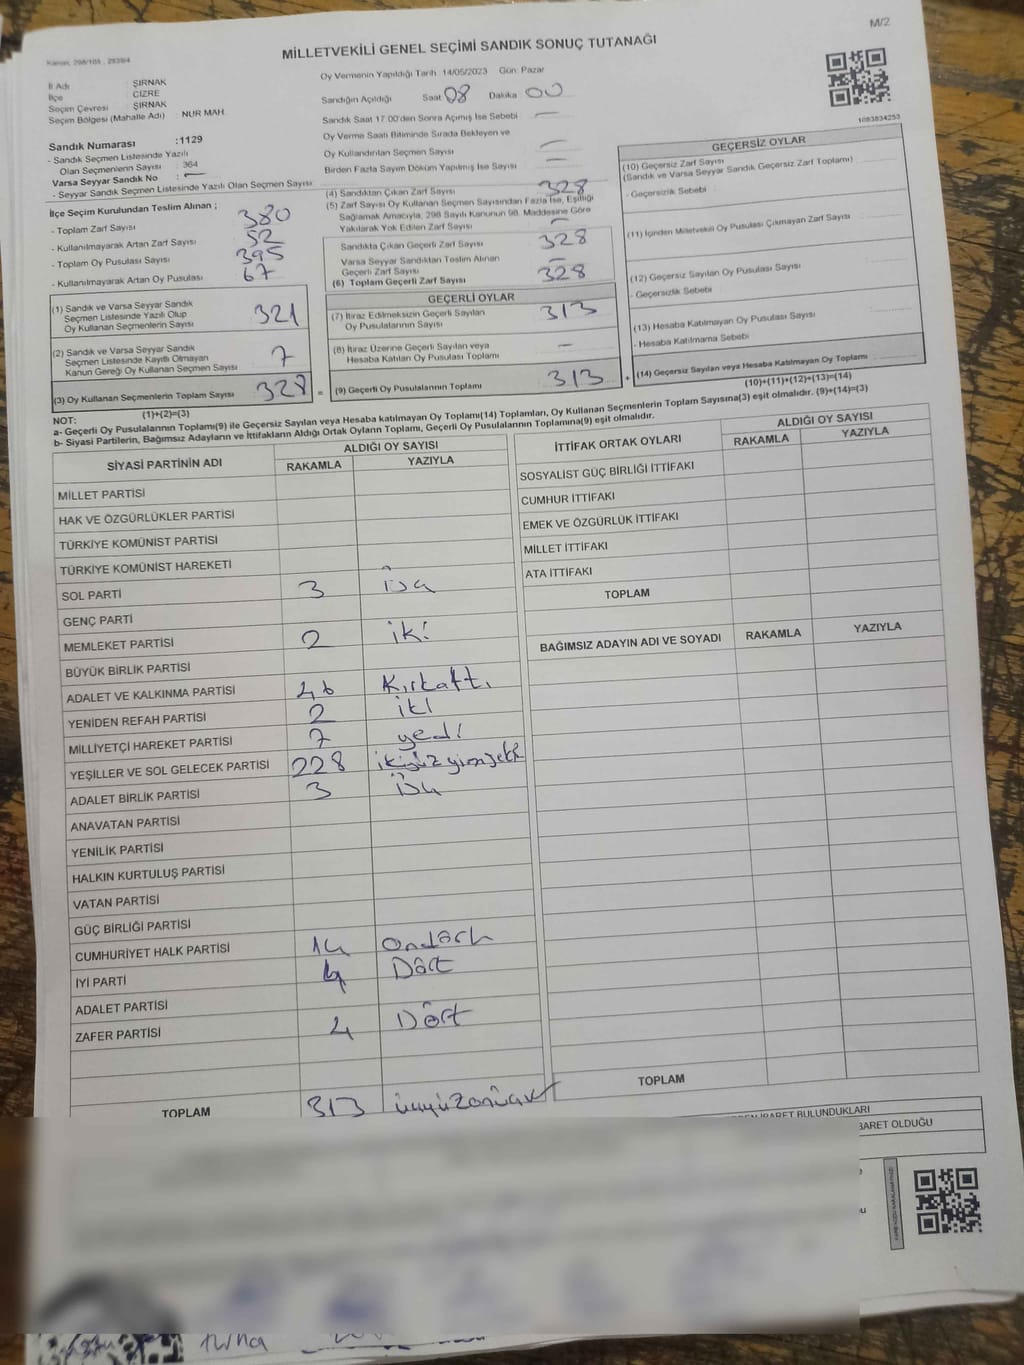 M/2
MİLLETVEKİLİ GENEL SEÇİMİ SANDIK SONUÇ TUTANAĞI
İl Adı : ŞIRNAK
İlçe : CİZRE
Seçim Çevresi : ŞIRNAK
Seçim Bölgesi (Mahalle Adı) : NUR MAH.
Oy Vermenin Yapıldığı Tarih 14/05/2023 Gün: Pazar
Sandığın Açıldığı Saat 08 Dakika 00
Sandık Saat 17:00'den Sonra Açımış İse Sebebi —
Oy Verme Saati Bitiminde Sırada Bekleyen ve
Oy Kullandırılan Seçmen Sayısı —
Birden Fazla Sayım Döküm Yapılmış İse Sayısı —
1083834253
Sandık Numarası :1129
- Sandık Seçmen Listesinde Yazılı
Olan Seçmenlerin Sayısı : 364
Varsa Seyyar Sandık No : —
- Seyyar Sandık Seçmen Listesinde Yazılı Olan Seçmen Sayısı
İlçe Seçim Kurulundan Teslim Alınan ;
- Toplam Zarf Sayısı 380
- Kullanılmayarak Artan Zarf Sayısı 52
- Toplam Oy Pusulası Sayısı 395
- Kullanılmayarak Artan Oy Pusulası 67
(1) Sandık ve Varsa Seyyar Sandık
Seçmen Listesinde Yazılı Olup
Oy Kullanan Seçmenlerin Sayısı 321
(2) Sandık ve Varsa Seyyar Sandık
Seçmen Listesinde Kayıtlı Olmayan
Kanun Gereği Oy Kullanan Seçmen Sayısı 7
(3) Oy Kullanan Seçmenlerin Toplam Sayısı 328 =
(4) Sandıktan Çıkan Zarf Sayısı 328
(5) Zarf Sayısı Oy Kullanan Seçmen Sayısından Fazla İse, Eşitliği
Sağlamak Amacıyla, 298 Sayılı Kanunun 98. Maddesine Göre
Yakılarak Yok Edilen Zarf Sayısı —
Sandıkta Çıkan Geçerli Zarf Sayısı 328
Varsa Seyyar Sandıktan Teslim Alınan
Geçerli Zarf Sayısı —
(6) Toplam Geçerli Zarf Sayısı 328
GEÇERLİ OYLAR
(7) İtiraz Edilmeksizin Geçerli Sayılan
Oy Pusulalarının Sayısı 313
(8) İtiraz Üzerine Geçerli Sayılan veya
Hesaba Katılan Oy Pusulası Toplamı —
(9) Geçerli Oy Pusulalarının Toplamı 313 +
GEÇERSİZ OYLAR
(10) Geçersiz Zarf Sayısı
(Sandık ve Varsa Seyyar Sandık Geçersiz Zarf Toplamı)
- Geçersizlik Sebebi
(11) İçinden Milletvekili Oy Pusulası Çıkmayan Zarf Sayısı
(12) Geçersiz Sayılan Oy Pusulası Sayısı
- Geçersizlik Sebebi
(13) Hesaba Katılmayan Oy Pusulası Sayısı
- Hesaba Katılmama Sebebi
(14) Geçersiz Sayılan veya Hesaba Katılmayan Oy Toplamı
(10)+(11)+(12)+(13)=(14)
NOT: (1)+(2)=(3)
a- Geçerli Oy Pusulalarının Toplamı(9) ile Geçersiz Sayılan veya Hesaba katılmayan Oy Toplamı(14) Toplamları, Oy Kullanan Seçmenlerin Toplam Sayısına(3) eşit olmalıdır. (9)+(14)=(3)
b- Siyasi Partilerin, Bağımsız Adayların ve İttifakların Aldığı Ortak Oyların Toplamı, Geçerli Oy Pusulalarının Toplamına(9) eşit olmalıdır.
SİYASİ PARTİNİN ADI ALDIĞI OY SAYISI
RAKAMLA YAZIYLA
MİLLET PARTİSİ
HAK VE ÖZGÜRLÜKLER PARTİSİ
TÜRKİYE KOMÜNİST PARTİSİ
TÜRKİYE KOMÜNİST HAREKETİ
SOL PARTİ 3
GENÇ PARTİ
MEMLEKET PARTİSİ 2 iki
BÜYÜK BİRLİK PARTİSİ
ADALET VE KALKINMA PARTİSİ 46 Kırkaltı
YENİDEN REFAH PARTİSİ 2 iki
MİLLİYETÇİ HAREKET PARTİSİ 7 yedi
YEŞİLLER VE SOL GELECEK PARTİSİ 228
ADALET BİRLİK PARTİSİ 3
ANAVATAN PARTİSİ
YENİLİK PARTİSİ
HALKIN KURTULUŞ PARTİSİ
VATAN PARTİSİ
GÜÇ BİRLİĞİ PARTİSİ
CUMHURİYET HALK PARTİSİ 14 Ondört
İYİ PARTİ 4 Dört
ADALET PARTİSİ
ZAFER PARTİSİ 4 Dört
TOPLAM 313
İTTİFAK ORTAK OYLARI ALDIĞI OY SAYISI
RAKAMLA YAZIYLA
SOSYALİST GÜÇ BİRLİĞİ İTTİFAKI
CUMHUR İTTİFAKI
EMEK VE ÖZGÜRLÜK İTTİFAKI
MİLLET İTTİFAKI
ATA İTTİFAKI
TOPLAM
BAĞIMSIZ ADAYIN ADI VE SOYADI RAKAMLA YAZIYLA
TOPLAM
İBARET BULUNDUKLARI
BARET OLDUĞU